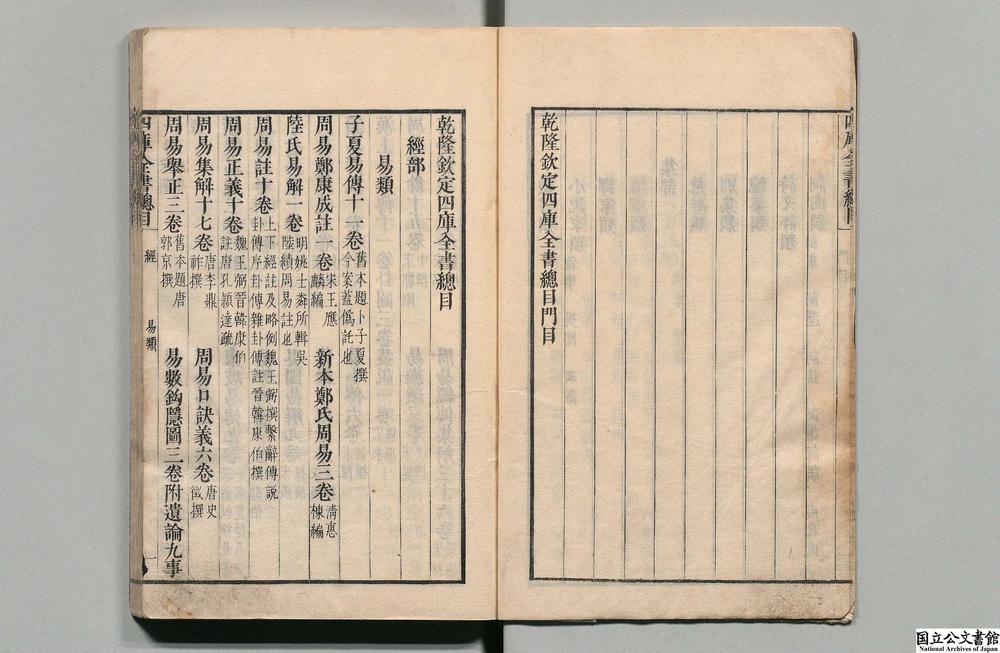 乾隆欽定四庫全書總目門目
乾隆欽定四庫全書總目
經部
易類
子夏易傳十一卷 舊本題卜子夏撰 今案蓋僞託也
周易鄭康成註一卷 宋王應 麟編 新本鄭氏周易三卷 淸惠 棟編
陸氏易解一卷 明姚士粦所輯吳 陸績周易註也
周易註十卷 上下經註及略例魏王弼撰繫辭傳說 卦傳序卦傳雜卦傳註晉韓康伯撰
周易正義十卷 魏王弼晉韓康伯 註唐孔穎達疏
周易集解十七卷 唐李鼎 祚撰 周易口訣義六卷 唐史 徵撰
周易舉正三卷 舊本題唐 郭京撰 易數鈎隱圖三卷附遺論九事
四庫全書總目 經 易類 一
国立公文書館
National Archives of Japan